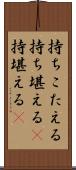 持ちこたえる
持ち堪える
持堪える